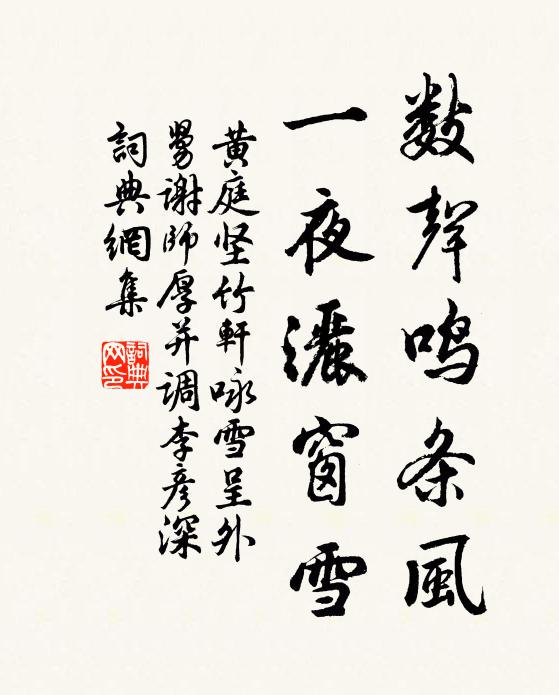 数聲鸣条風
一夜灑窗雪
黄庭坚竹軒咏雪呈外
舅谢師厚并调李彦深
詞典網集
詞典
网印